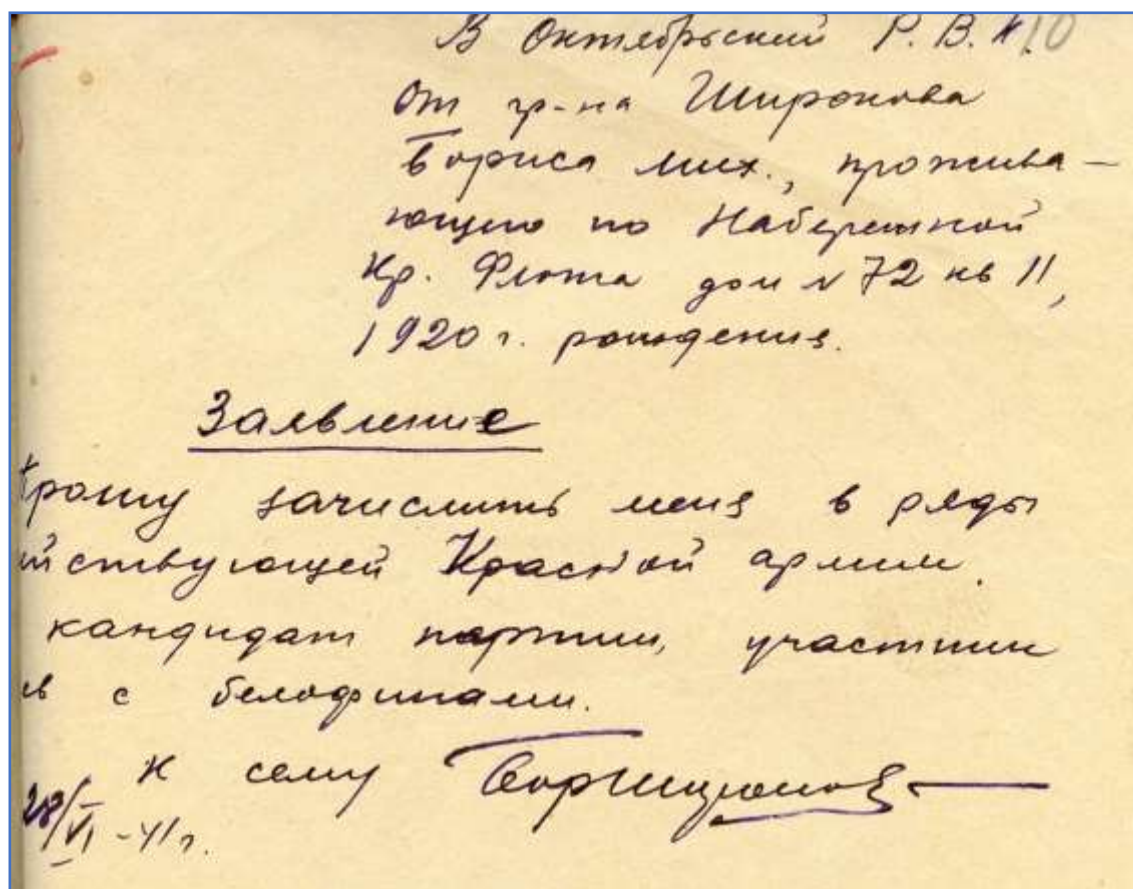 В Октябрьский Р. В. К. 10
От гр-на Широкова
Бориса Мих., прожива-
ющего по Набережной
Кр. Флота дом № 72 кв 11,
1920 г. рождения.
Заявление
Прошу зачислить меня в ряды
йствующей Красной армии.
кандидат партии, участник
ев с белофинами.
К сему БорШироков
28/VI-41г.